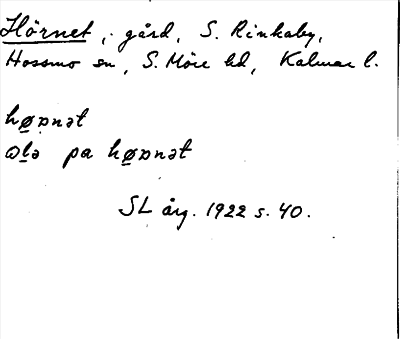 Hörnet, gård, S. Rinkaby,
Hossmo sn, S. Möre hd, Kalmar l.
høɒnət
ɷlə pa høɒnət
SL årg. 1922 s. 40.